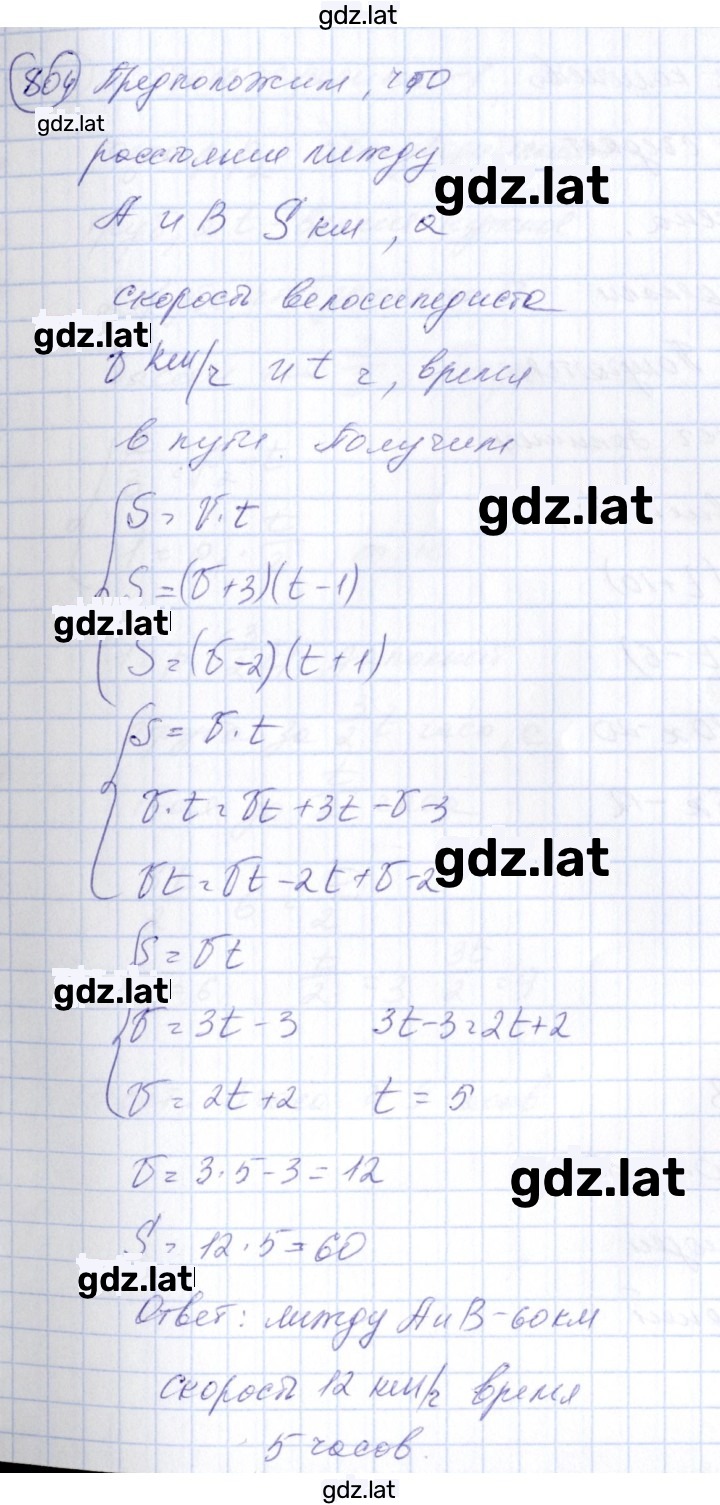 gdz.lat
804 Предположим, что
gdz.lat
расстояние между
gdz.lat
А и В S км, а
скорость велосипедиста
gdz.lat
v км/ч и t ч, время
в пути. Получим
S = v·t
gdz.lat
S = (v+3)(t-1)
gdz.lat
S = (v-2)(t+1)
S = v·t
v·t = vt + 3t - v - 3
gdz.lat
vt = vt - 2t + v - 2
S = vt
gdz.lat
v = 3t - 3 3t-3=2t+2
v = 2t + 2 t = 5
v = 3·5 - 3 = 12
gdz.lat
S = 12·5 = 60
gdz.lat
Ответ: между А и В - 60 км
скорость 12 км/ч время
5 часов.
gdz.lat